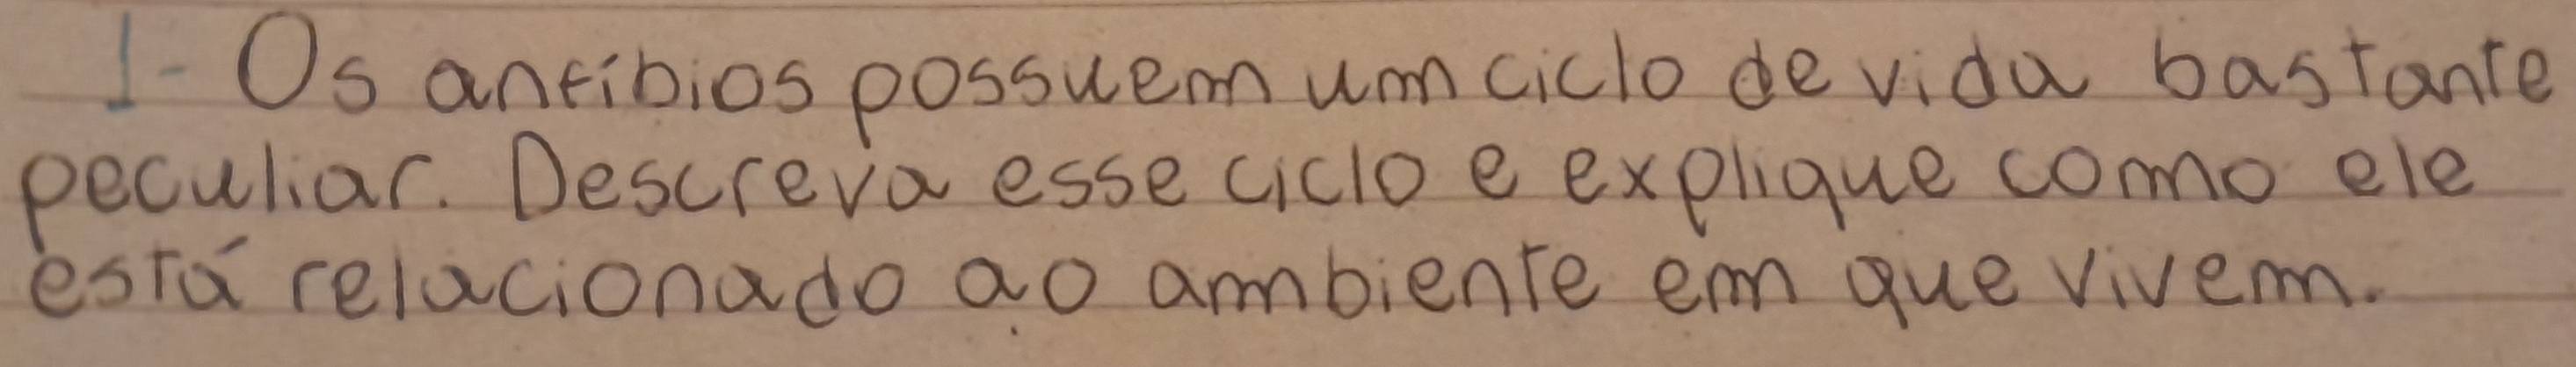 1- Os anfíbios possuem um ciclo de vida bastante
peculiar. Descreva esse ciclo e explique como ele
está relacionado ao ambiente em que vivem.